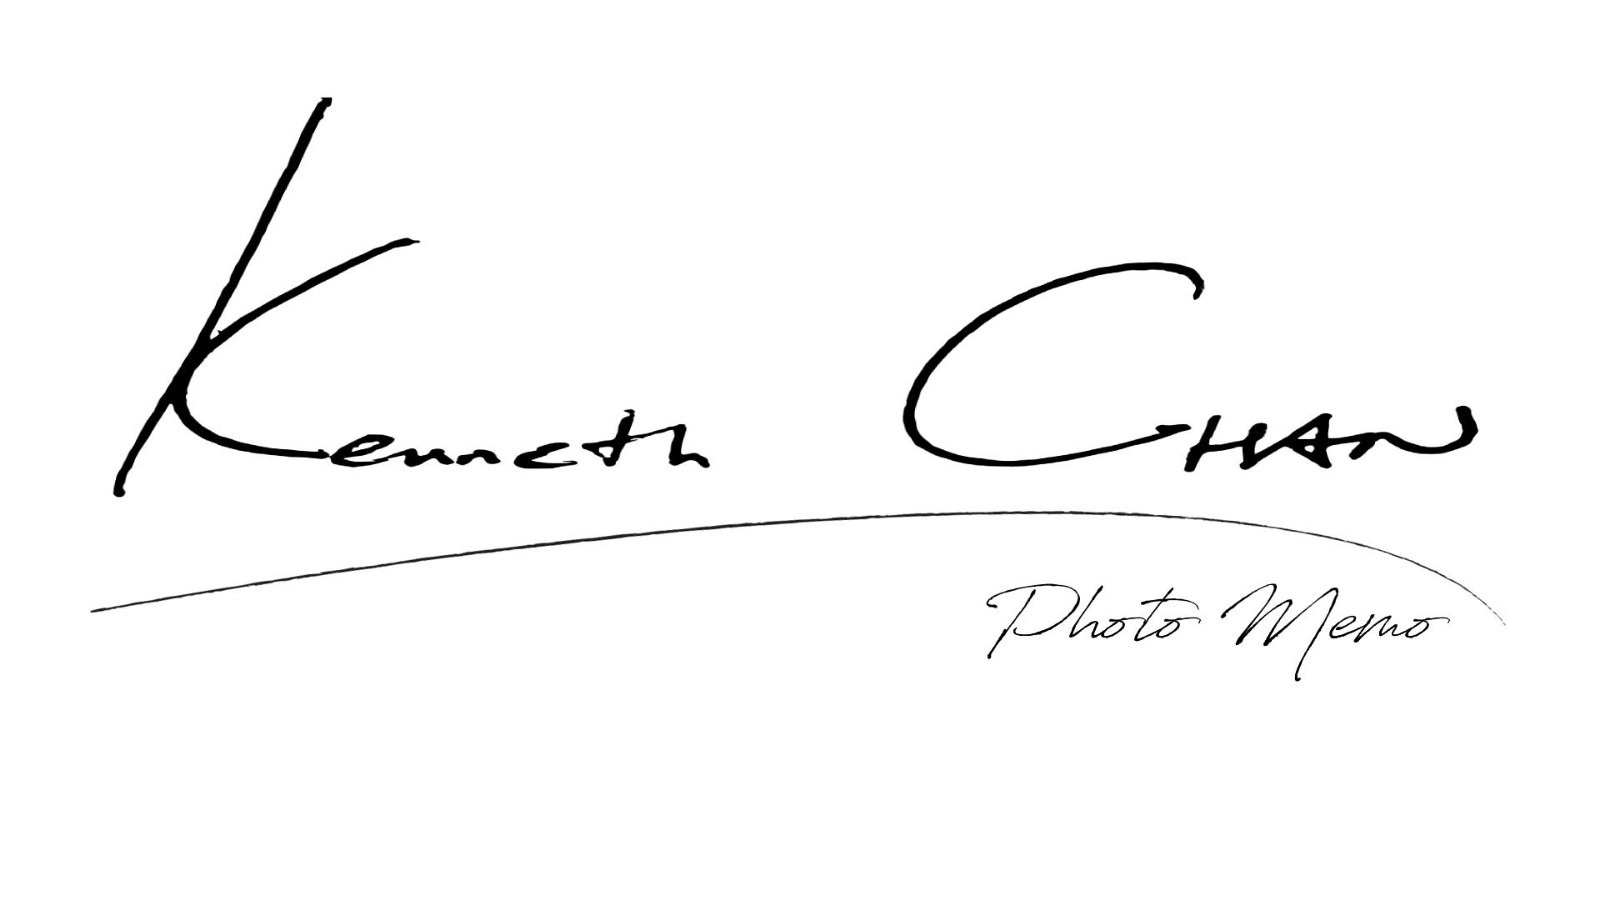 Kenneth CHAN
Photo Memo